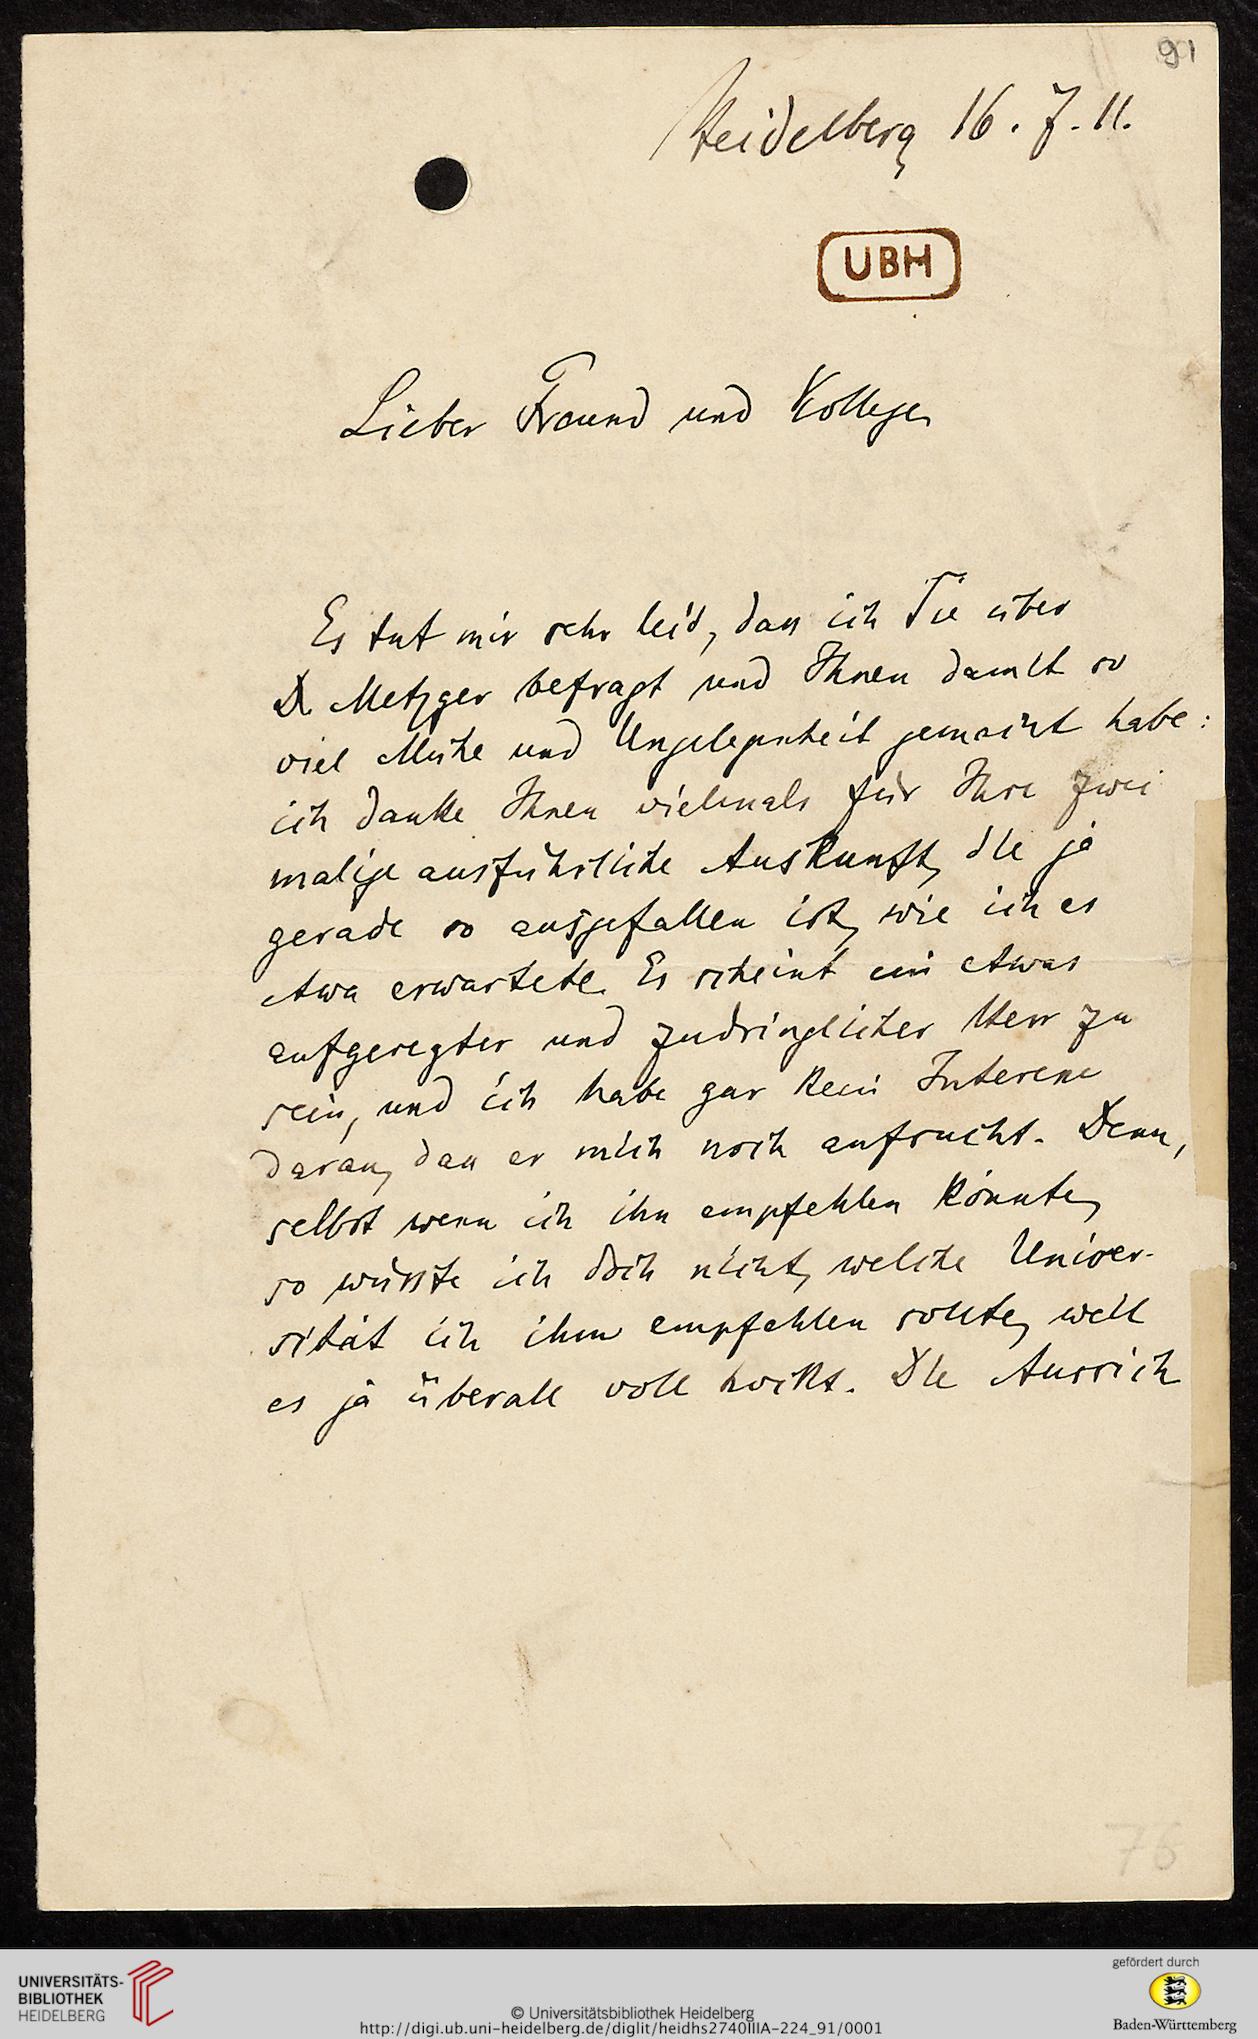 91
Heidelberg 16.7.11.
UBH
Lieber Freund und Kollege,
Es tut mir sehr leid, dass ich Sie über
D. Metzger befragt und Ihnen damit so
viel Mühe und Ungelegenheit gemacht habe:
ich danke Ihnen vielmals für Ihre zwei
malige ausführliche Auskunft, die ja
gerade so ausgefallen ist, wie ich es
etwa erwartete. Es scheint ein etwas
aufgeregter und zudringlicher Herr zu
sein, und ich habe gar kein Interesse
daran, dass er mich noch aufsucht. Denn,
selbst wenn ich ihn empfehlen könnte,
so wüsste ich doch nicht, welche Univer-
sität ich ihm empfehlen sollte, weil
es ja überall voll hockt. Die Aussich
76
UNIVERSITÄTS-
BIBLIOTHEK
HEIDELBERG
© Universitätsbibliothek Heidelberg
http://digi.ub.uni-heidelberg.de/diglit/heidhs2740IIIA-224_91/0001
gefördert durch
Baden-Württemberg